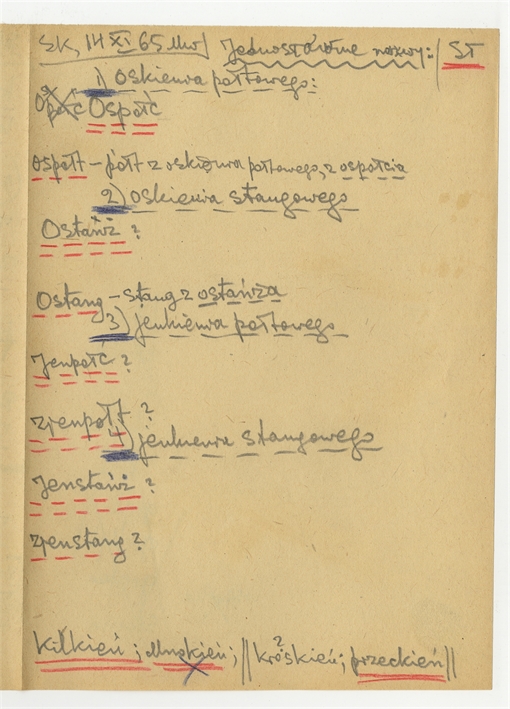 SK, 14 XI 65 Mw/ Jednosłówne nazwy: / ST
1) oskienia połtowego:
Ospołć
ospołt – połt z oskienia połtowego, z ospołcia
2) oskienia stangowego
Ostańż ?
Ostang – stang z ostańża
3) jenkienia połtowego
Jenpołć ?
zjenpołt ?
4) jenkienia stangowego
Jenstańż ?
zjenstang ?
Kiłkień; Mnokień; || króśkień; przeckień ||